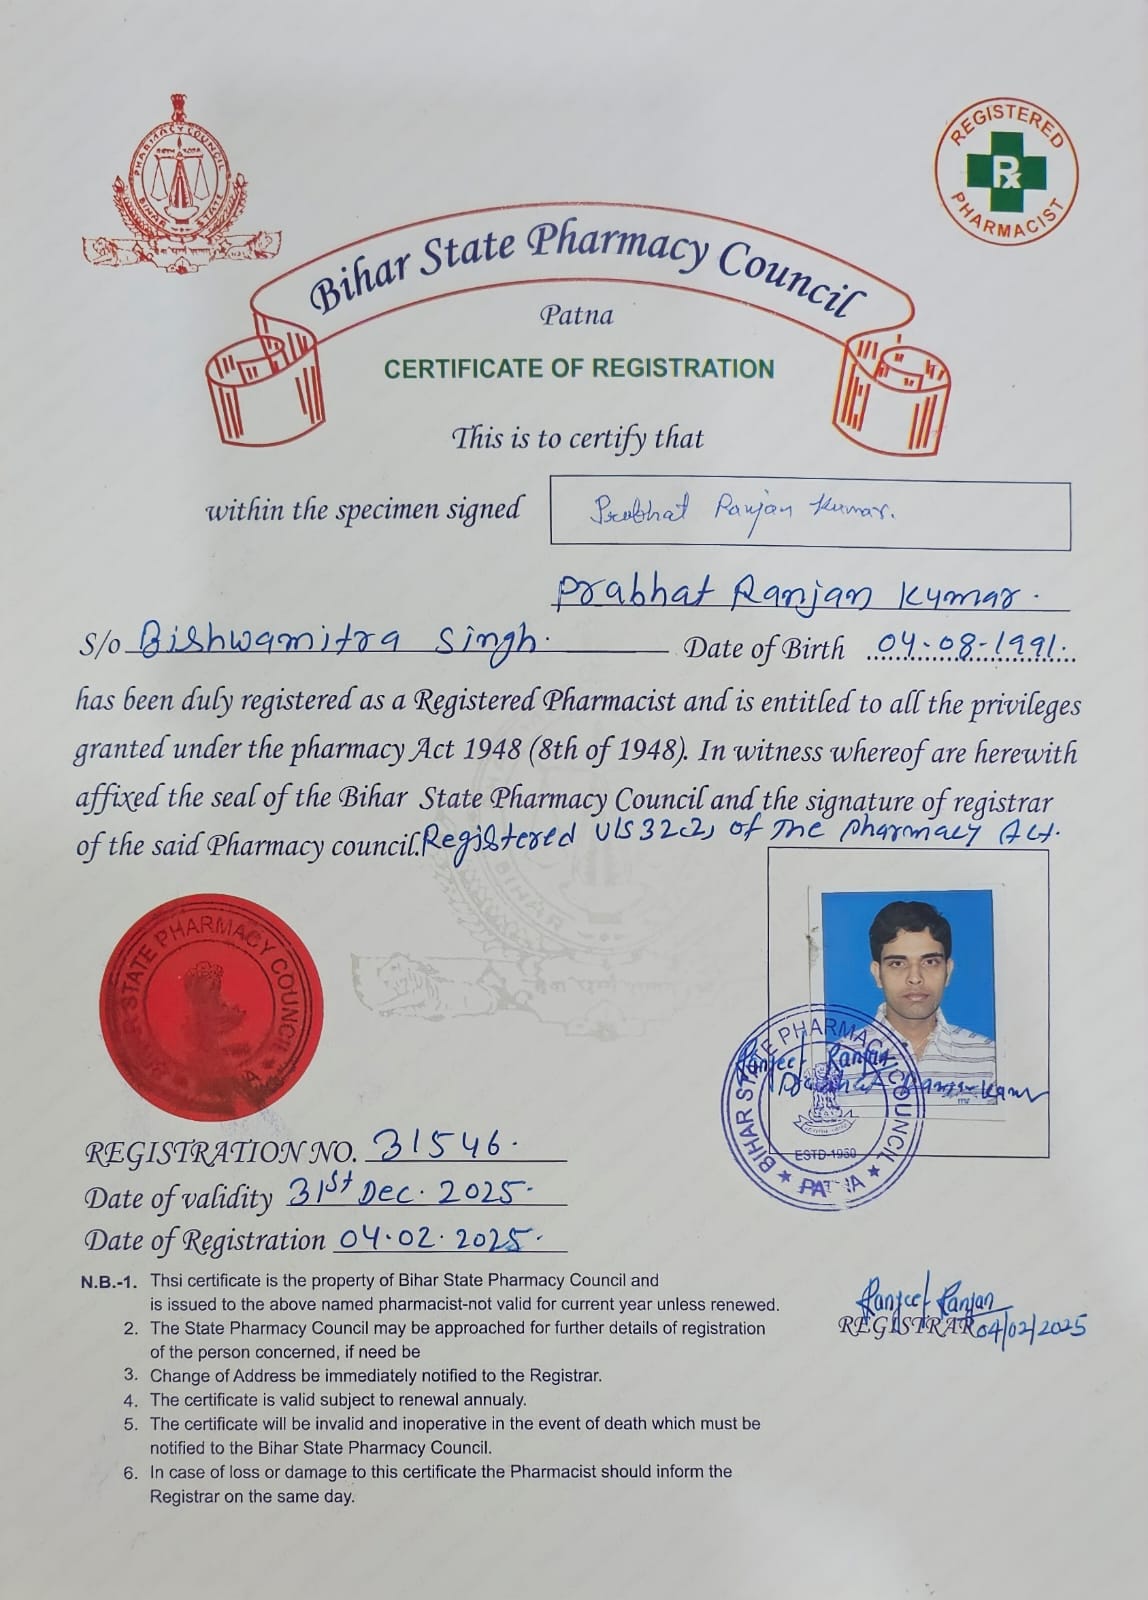 PHARMACY COUNCIL
BIHAR STATE
REGISTERED
Rx
PHARMACIST
Bihar State Pharmacy Council
Patna
CERTIFICATE OF REGISTRATION
This is to certify that
within the specimen signed Prabhat Ranjan Kumar.
Prabhat Ranjan Kumar.
S/o Bishwamitra Singh. Date of Birth 04-08-1991.
has been duly registered as a Registered Pharmacist and is entitled to all the privileges
granted under the pharmacy Act 1948 (8th of 1948). In witness whereof are herewith
affixed the seal of the Bihar State Pharmacy Council and the signature of registrar
of the said Pharmacy council. Registered U/S 32(2) of The Pharmacy Act.
STATE PHARMACY COUNCIL
BIHAR
BIHAR STATE PHARMACY COUNCIL
Ranjeet Ranjan
Prabhat Ranjan Kumar
ESTD-1960
PATNA
REGISTRATION NO. 31546.
Date of validity 31st Dec. 2025.
Date of Registration 04.02.2025.
N.B.-1. Thsi certificate is the property of Bihar State Pharmacy Council and
is issued to the above named pharmacist-not valid for current year unless renewed.
2. The State Pharmacy Council may be approached for further details of registration
of the person concerned, if need be
3. Change of Address be immediately notified to the Registrar.
4. The certificate is valid subject to renewal annualy.
5. The certificate will be invalid and inoperative in the event of death which must be
notified to the Bihar State Pharmacy Council.
6. In case of loss or damage to this certificate the Pharmacist should inform the
Registrar on the same day.
Ranjeet Ranjan
REGISTRAR 04/02/2025